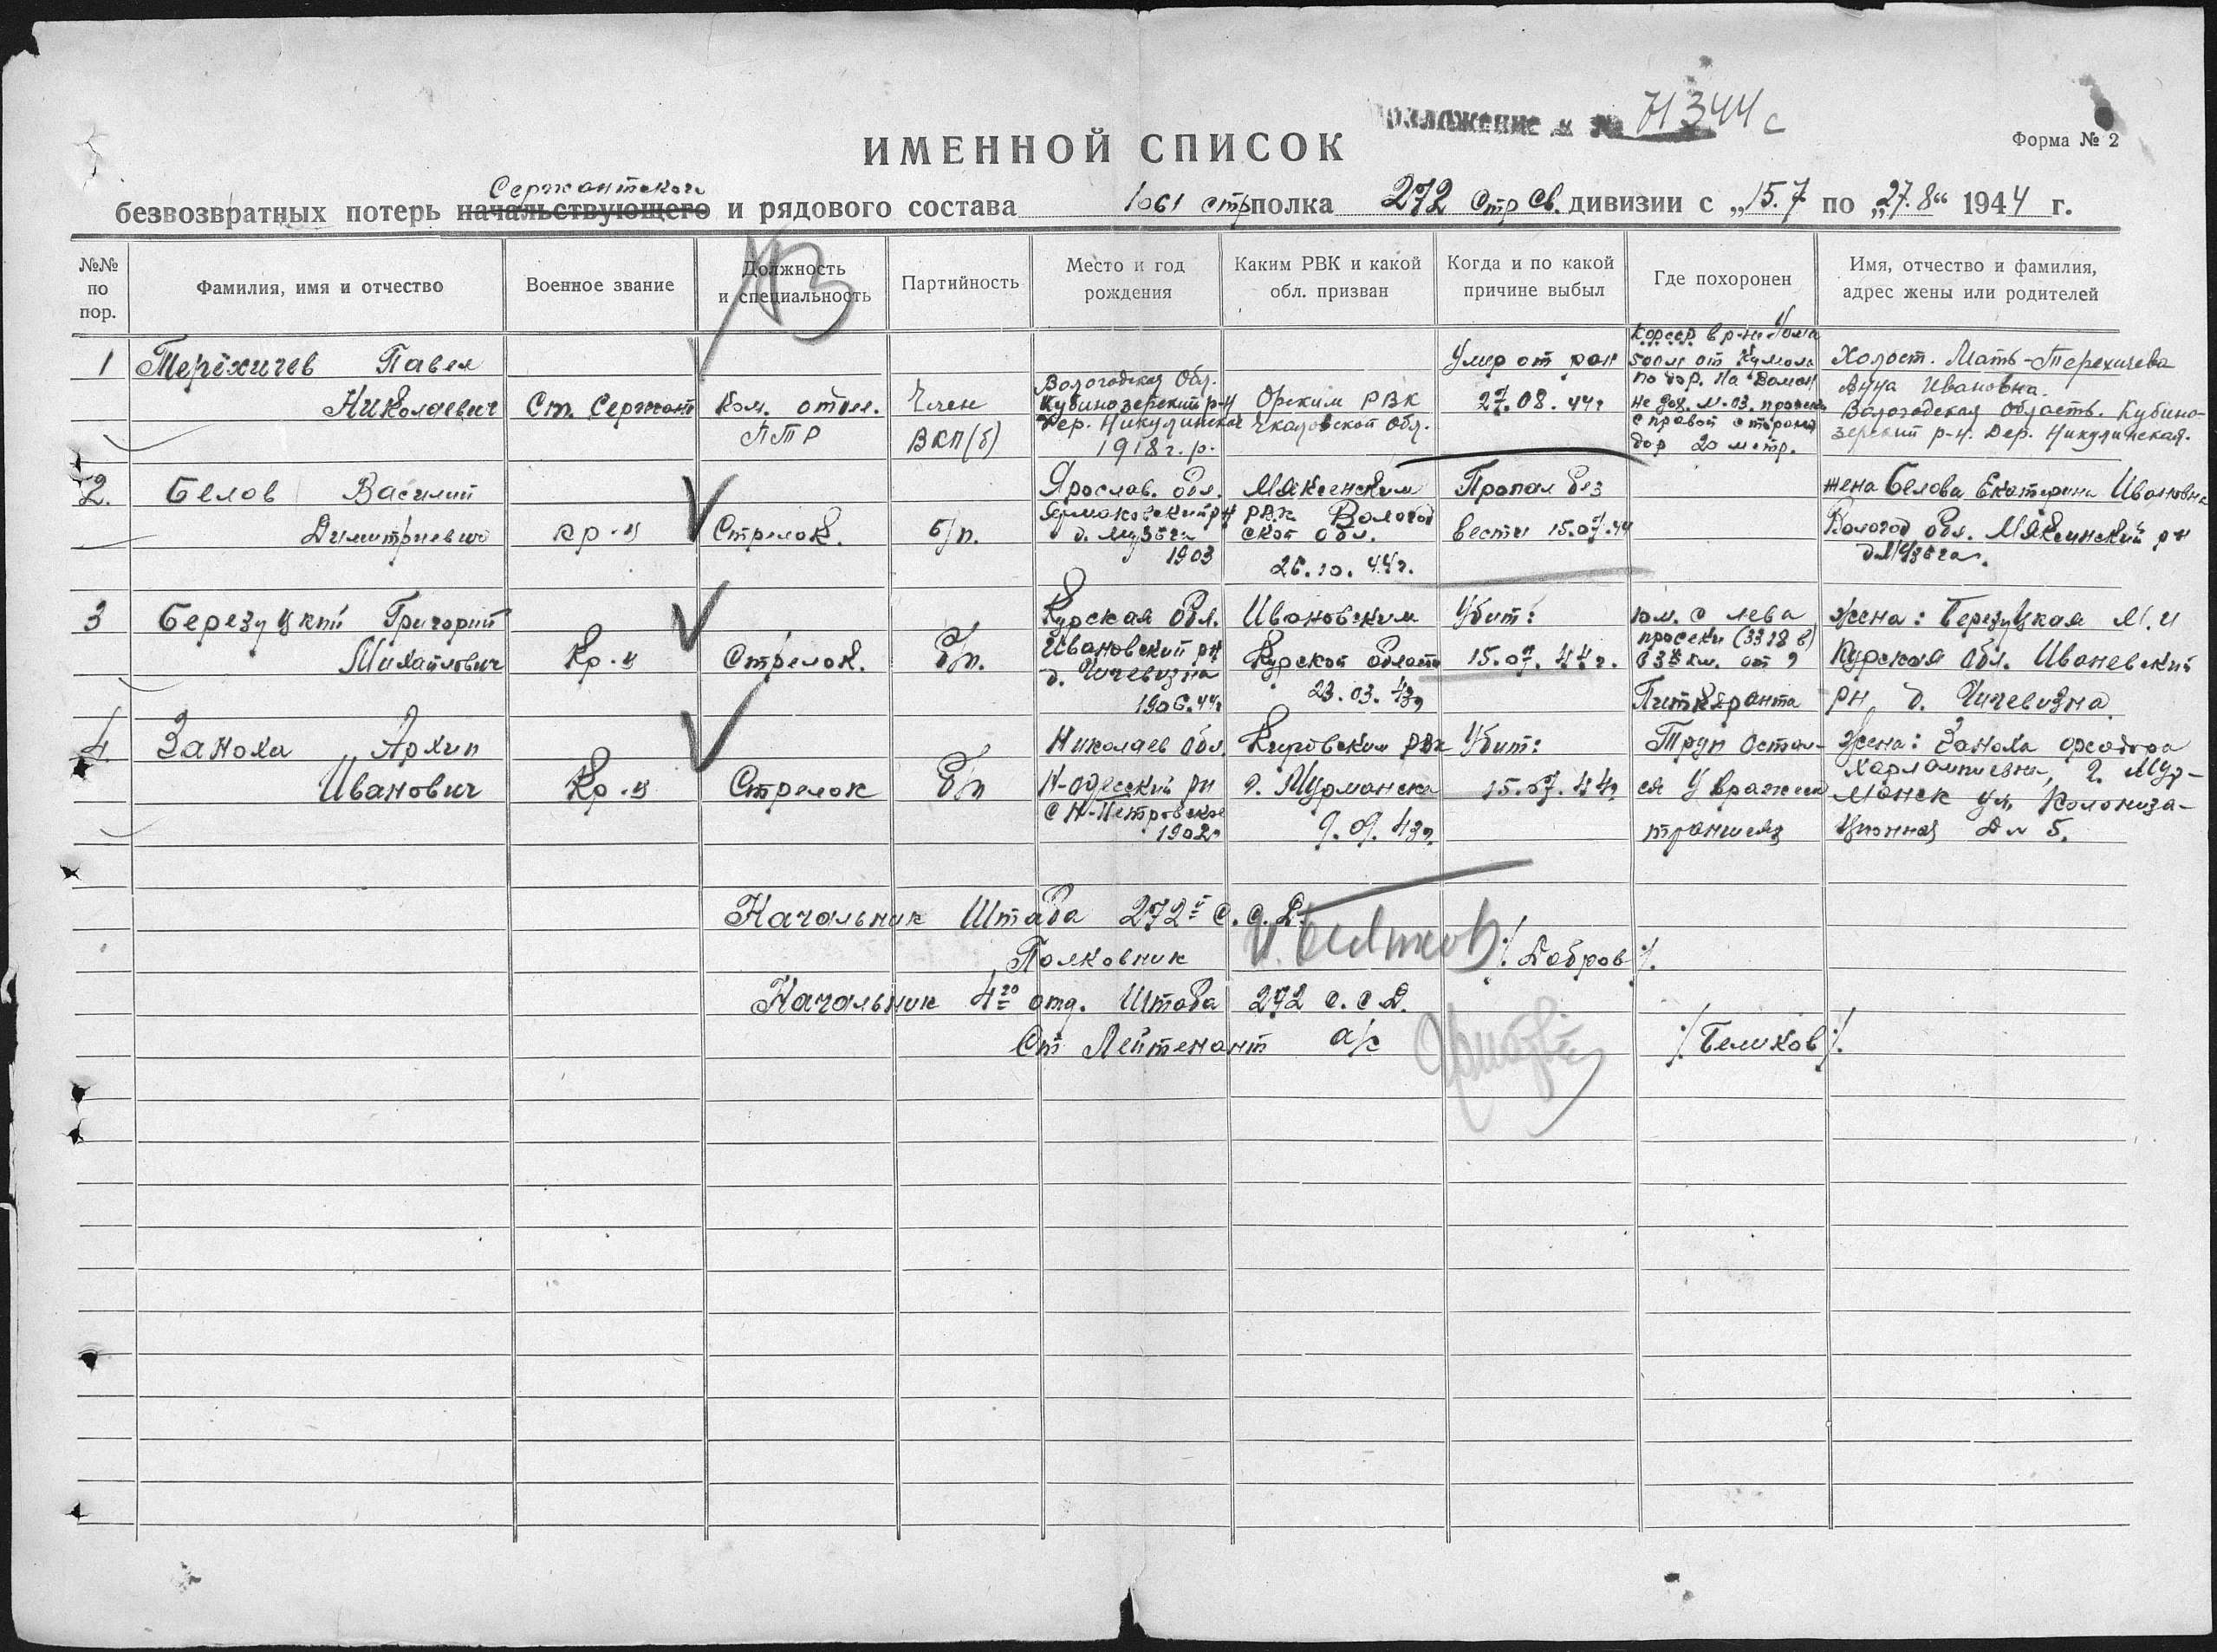 Приложение к № 71344с
ИМЕННОЙ СПИСОК
Форма № 2
Сержантского
безвозвратных потерь начальствующего и рядового состава 1061 стр полка 272 Стр Св. дивизии с „15.7 по „27.8“ 1944 г.
№№ по пор.
Фамилия, имя и отчество
Военное звание
Должность и специальность
Партийность
Место и год рождения
Каким РВК и какой обл. призван
Когда и по какой причине выбыл
Где похоронен
Имя, отчество и фамилия, адрес жены или родителей
1
Терехичев Павел
Николаевич
Ст. Сержант
Ком. отдел.
ПТР
Член
ВКП(б)
Вологодская Обл.
Кубинозерский р-н
Дер. Никулинская
1918 г. р.
Орским РВК
Чкаловской Обл.
Умер от ран
27.08.44г
500 м от
с правой стороны
дор 20 метр.
Холост. Мать-Терехичева
Анна Ивановна.
Вологодская область. Кубино-
зерский р-н. Дер. Никулинская.
2.
Белов Василий
Димитриевич
кр-ц
Стрелок.
б/п.
Ярослав. обл.
Ермаковский рн
1903
Мяксенским
РВК Вологод
ской обл.
26.10.44г.
Пропал без
вести 15.07.44
жена Белова Екатерина Ивановна
Вологод обл. Мяксинский рн
3
Березуцкий Григорий
Михайлович
Кр-ц
Стрелок.
Б/п.
Курская Обл.
Ивановский рн
д. Чичевизна
1906
Ивановским
Курской области
23.03.43г
Убит:
15.07.44г.
юм. с лева
просеки (3328 в)
Питкяранта
Жена: Березуцкая М.И
Курская Обл. Иваневский
рн, д. Чичевизна
4.
Заноха Архип
Иванович
Кр-ц
Стрелок
Б/п
Николаев Обл.
Н-Одесский рн
с Н-Петровское
1902г
Кировским РВК
г. Мурманска
9.09.43г.
Убит:
15.07.44г
Труп остал-
ся у вражеск
траншея
Жена: Заноха Феодора
Харлампиевна, г. Мур-
манск ул. Колониза-
ционная Д № 5.
Начальник Штаба 272й С.С.Д.
Полковник /Добров/.
Начальник 4го отд. Штаба 272 с.с.д.
Ст Лейтенант а/с /Беликов/.